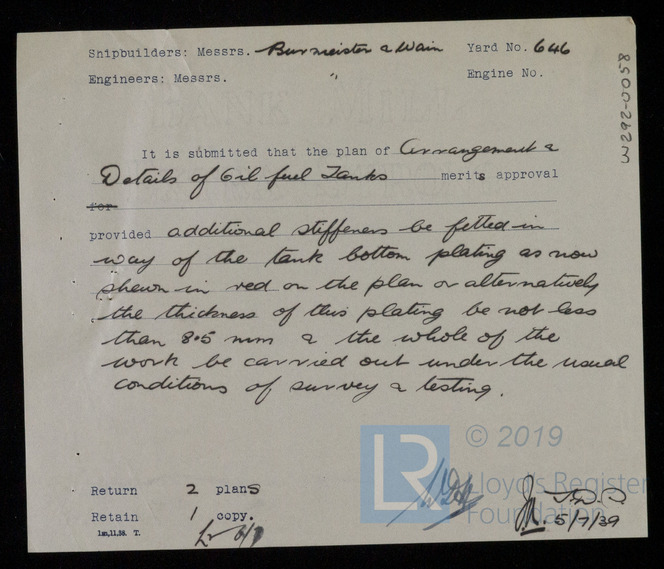 Shipbuilders: Messrs. Burmeister & Wain Yard No. 646
Engineers: Messrs. " Engine No.
W262-0058
It is submitted that the plan of Arrangement &
Details of Oil fuel Tanks merits approval
for
provided additional stiffeners be fitted in
way of the tank bottom plating as now
shewn in red on the plan or alternatively
the thickness of this plating be not less
than 8.5 mm & the whole of the
work be carried out under the usual
conditions of survey & testing.
© 2019
LR Lloyd's Register
Foundation
Return 2 plans
Retain 1 copy.
1m,11,38. T.
5/7/39